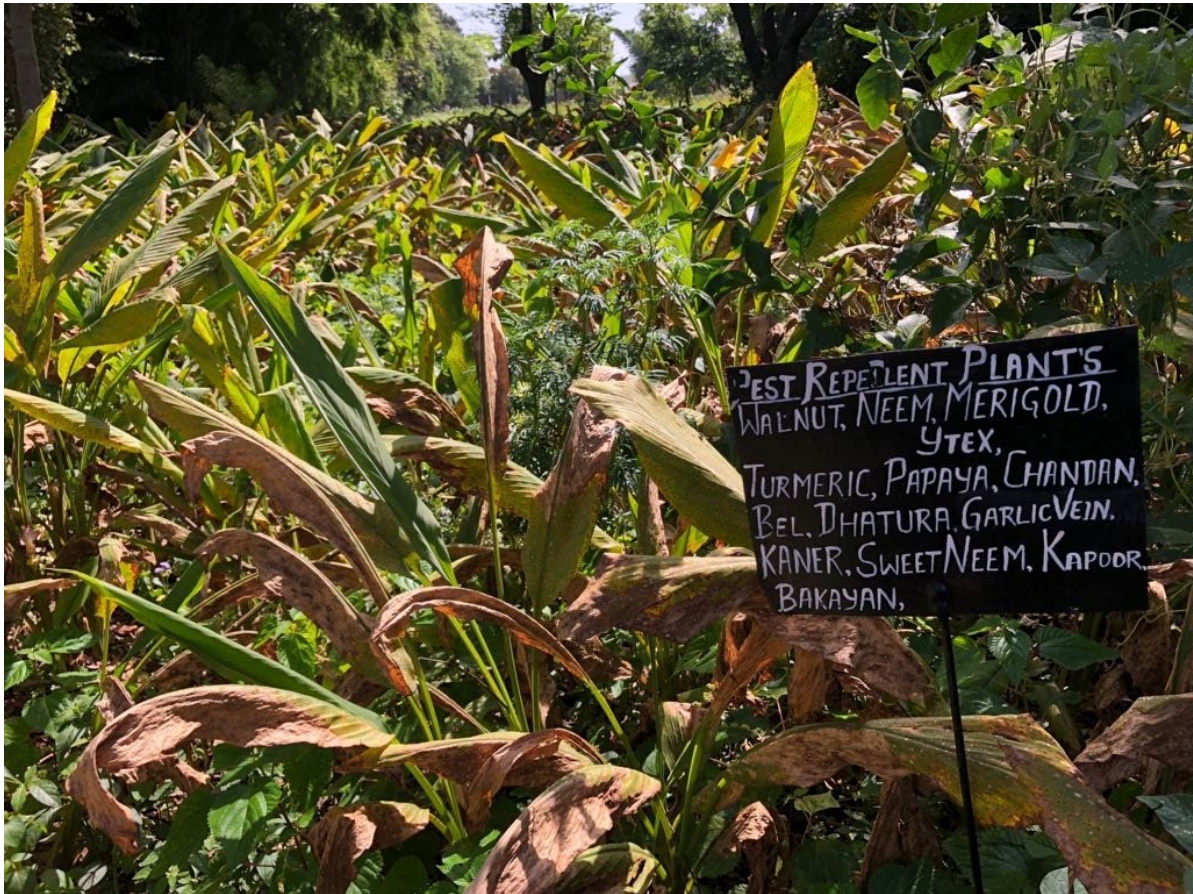 PEST REPELLENT PLANT'S
WALNUT, NEEM, MERIGOLD,
YTEX,
TURMERIC, PAPAYA, CHANDAN,
BEL, DHATURA, GARLIC VEIN,
KANER, SWEET NEEM, KAPOOR,
BAKAYAN,